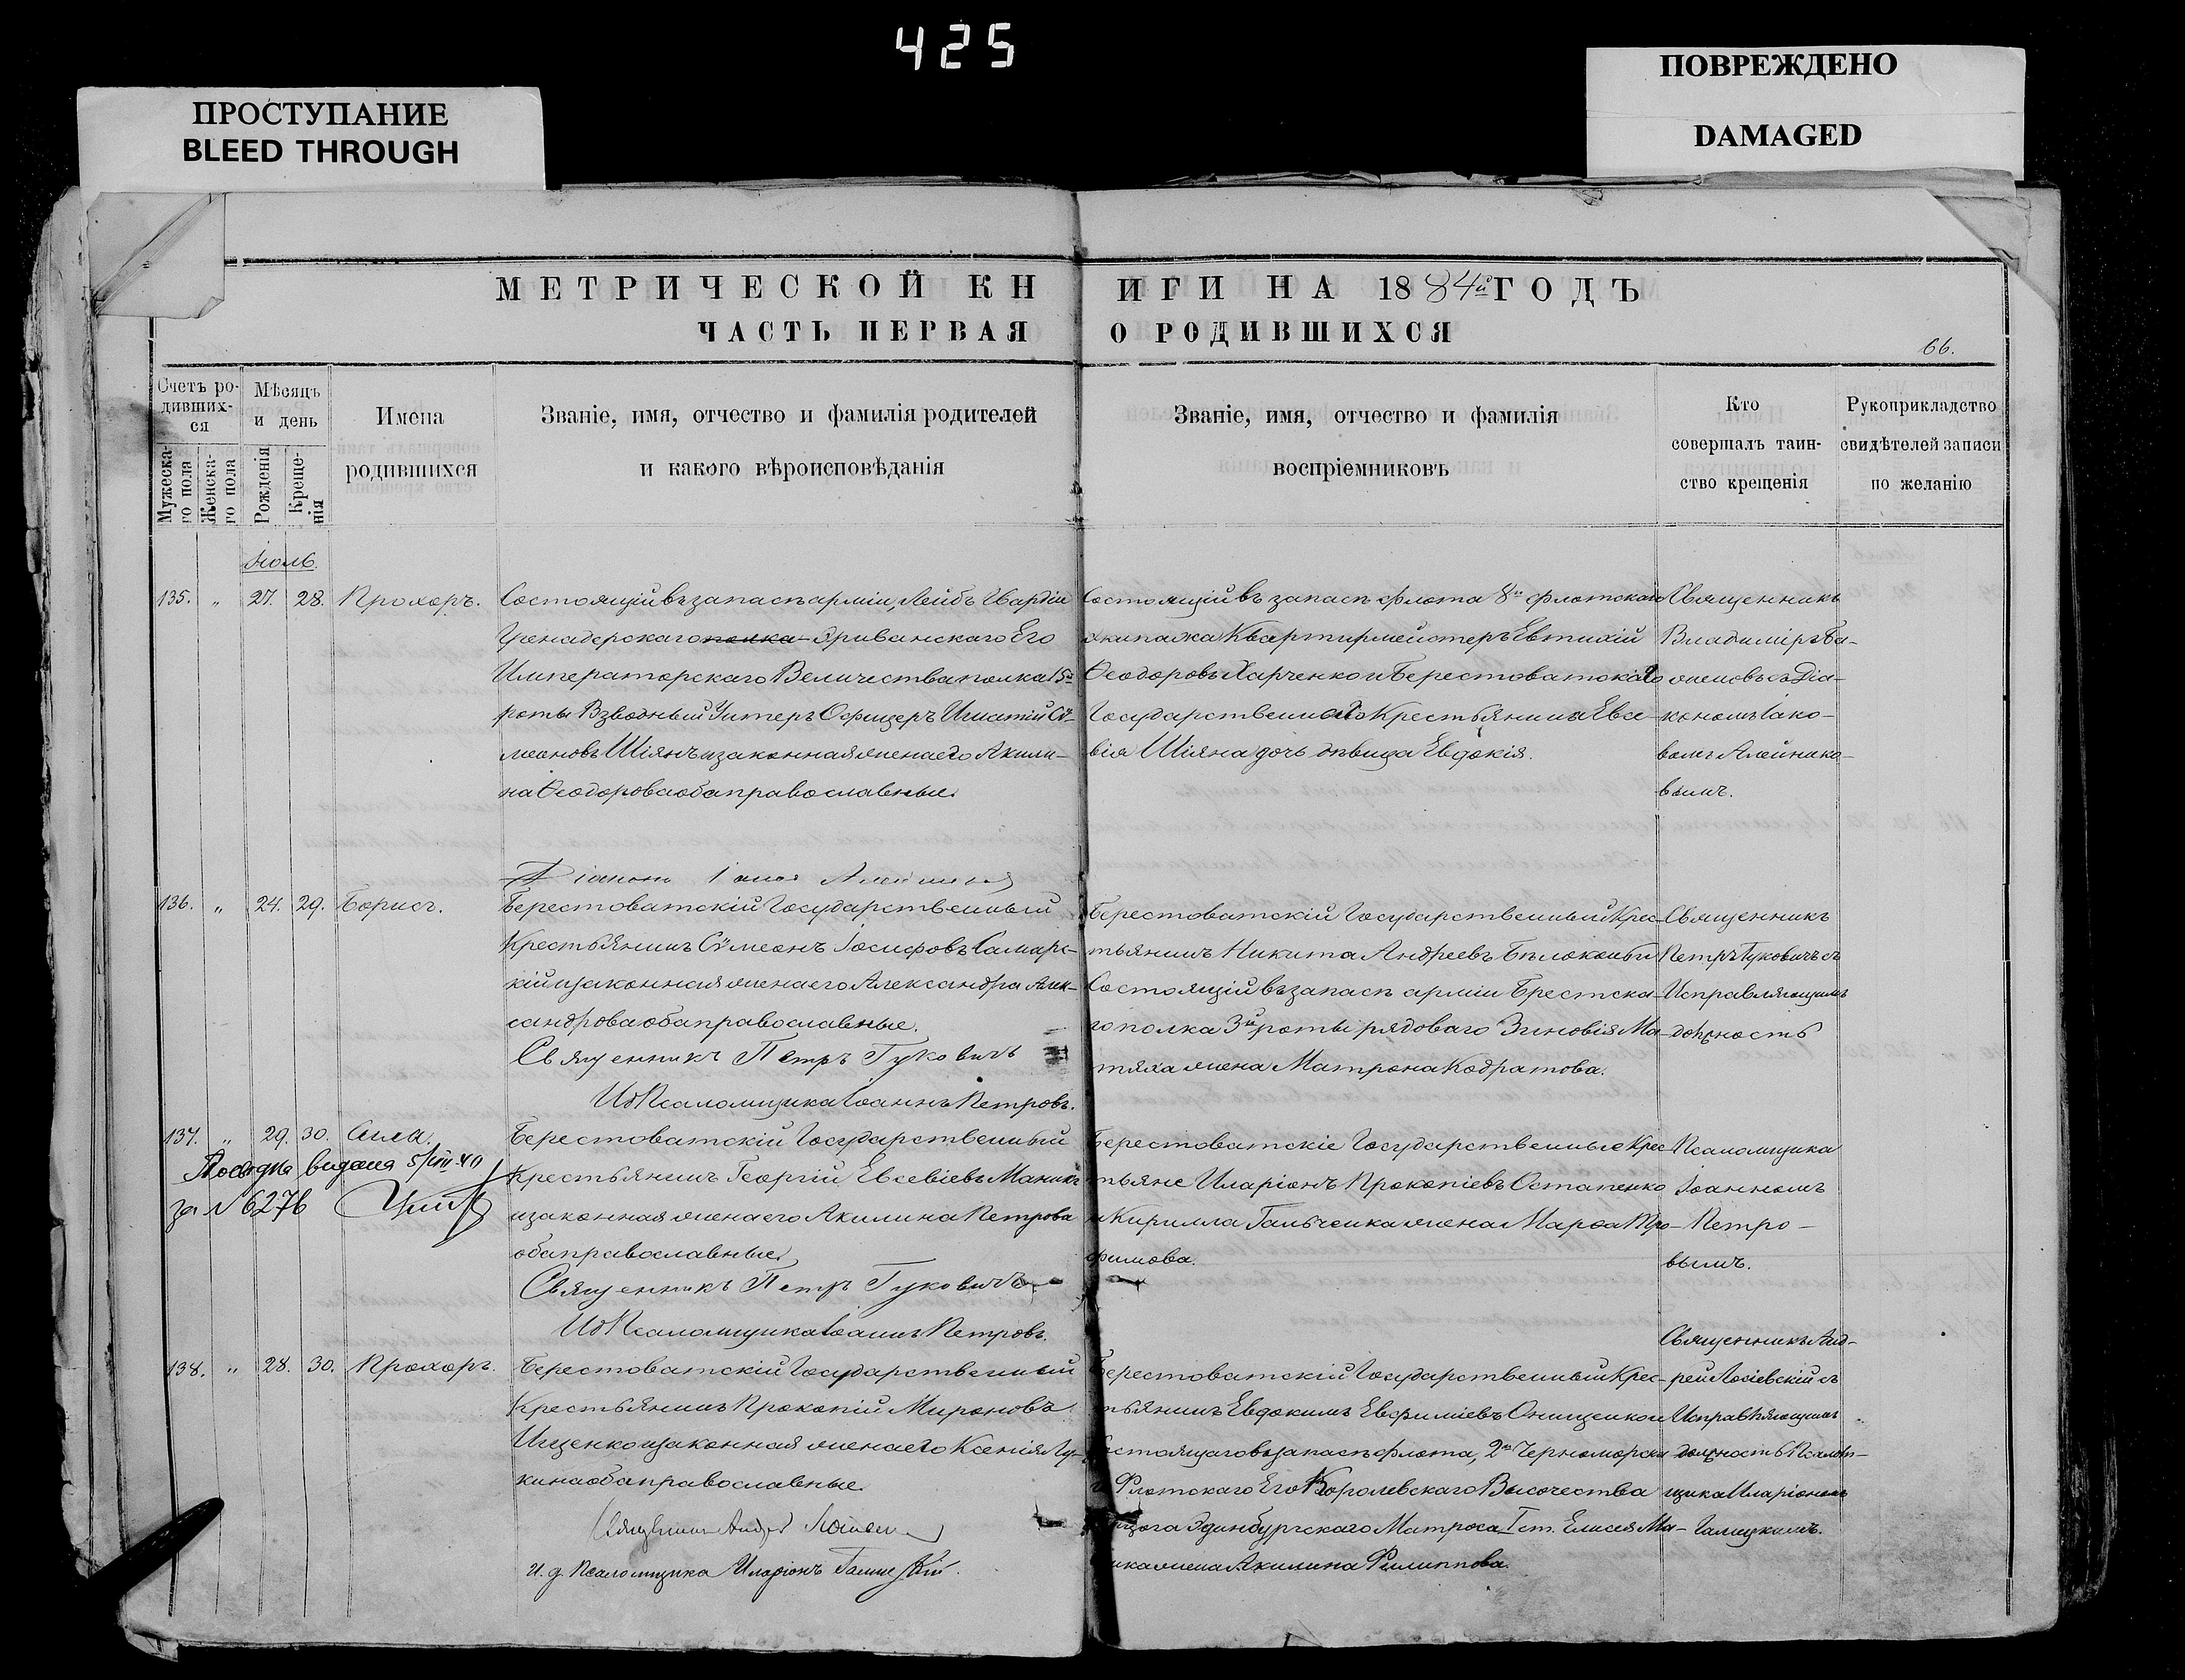 425
ПРОСТУПАНИЕ
BLEED THROUGH
ПОВРЕЖДЕНО
DAMAGED
МЕТРИЧЕСКОЙ КНИГИ НА 1884й ГОДЪ
ЧАСТЬ ПЕРВАЯ О РОДИВШИХСЯ
66.
Счетъ ро-
дивших-
ся
Мужеска-
го пола
Женска-
го пола
Мѣсяцъ
и день
Рожденія
Креще-
нія
Имена
родившихся
Званіе, имя, отчество и фамилія родителей
и какого вѣроисповѣданія
Званіе, имя, отчество и фамилія
воспріемниковъ
Кто
совершалъ таин-
ство крещенія
Рукоприкладство
свидѣтелей записи
по желанію
Іюль.
135. " 27. 28. Прохоръ.
Состоящій въ запасѣ арміи, Лейбъ Гвардіи
Гренадерскаго полка Эриванскаго Его
Императорскаго Величества полка 15й
роты Взводный Унтеръ Офицеръ Игнатій Сѵ-
меоновъ Шіянъ и законная жена его Акили-
на Ѳеодорова оба православные.
Состоящій въ запасѣ флота 8го флотскаго
экипажа Квартирмейстеръ Евтихій
Ѳеодоровъ Харченко и Берестоватскаго
Государственнаго Крестьянина Евсе-
вія Шіяна дочь дѣвица Евдокія.
Священникъ
Владиміръ Ба-
женовъ съ Діа-
кономъ Іако-
вомъ Алейнико-
вымъ.
136. " 24. 29. Борисъ.
Берестоватскій Государственный
Крестьянинъ Сѵмеонъ Іосифовъ Самарс-
кій и законная жена его Александра Алек-
сандрова оба православные.
Священникъ Петръ Гуковичъ
И д Псаломщика Іоаннъ Петровъ.
Берестоватскій Государственный Крес-
тьянинъ Никита Андреевъ Бѣлоконь и
Состоящій въ запасѣ арміи Брестска-
го полка 3й роты рядоваго Зиновія Ма-
тяха жена Матрона Кодратова.
Священникъ
Петръ Гуковичъ съ
Исправляющимъ
должность
137. " 29. 30. Сила.
за № 6276
Берестоватскій Государственный
Крестьянинъ Георгій Евсевіевъ Маникъ
и законная жена его Акилина Петрова
оба православные.
Священникъ Петръ Гуковичъ
И д Псаломщика Іоаннъ Петровъ.
Берестоватскіе Государственные Крес-
тьяне Иларіонъ Прокопіевъ Остапенко
и Кирилла Гальченка жена Марѳа Тро-
фимова.
Псаломщика
Іоанномъ
Петро-
вымъ.
138. " 28. 30. Прохоръ.
Берестоватскій Государственный
Крестьянинъ Прокопій Мироновъ
Ищенко и законная жена его Ксенія Лу-
кина оба православные.
и. д. Псаломщика Иларіонъ Галицкій.
Берестоватскій Государственный Крес-
тьянинъ Евдокимъ Евфиміевъ Онищенко и
Состоящаго въ запасѣ флота, 2го Черноморска
го Флотскаго Его Королевскаго Высочества
Герцога Эдинбургскаго Матроса I ст. Елисея Ма-
жена Акилина Филиппова.
Священникъ Анд-
рей Лосіевскій съ
Исправляющимъ
должность Псалом-
щика Иларіономъ
Галицкимъ.